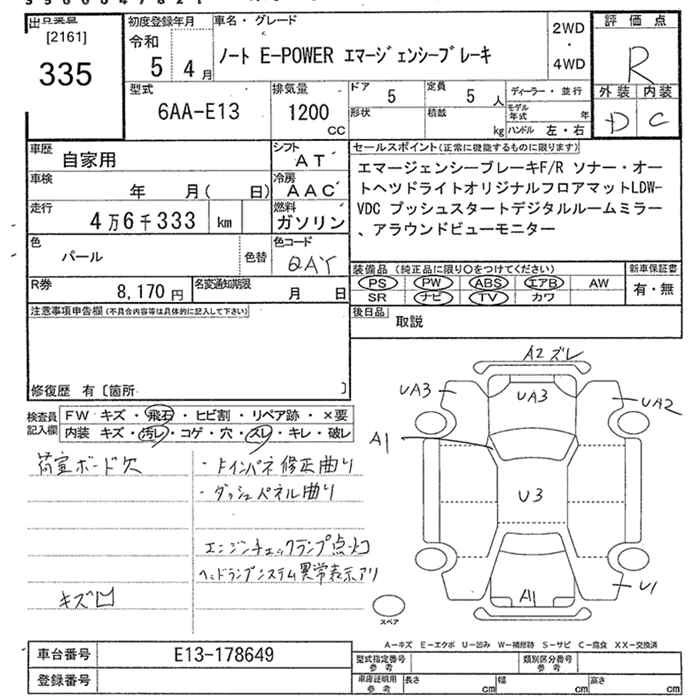 出品票
[2161]
335
初度登録年月
令和
5 4月
車名・グレード
ノート E-POWER エマージェンシーブレーキ
2WD
・
4WD
評価点
R
外装 内装
D C
型式
6AA-E13
排気量
1200
cc
ドア 5
定員 5 人
形状
積載 kg
ディーラー・並行
モデル年式 年
ハンドル 左・右
車歴 自家用
シフト AT
車検 年 月( 日)
冷房 AAC
走行 4万6千333 km
燃料 ガソリン
色 パール
色替
色コード QAY
R券 8,170円
名変通知期限 月 日
セールスポイント(正常に機能するものに限ります)
エマージェンシーブレーキF/R ソナー・オー
トヘツドライトオリジナルフロアマットLDW-
VDC プッシュスタートデジタルルームミラー
、アラウンドビューモニター
装備品 (純正品に限り○をつけてください)
PS PW ABS エアB AW
SR ナビ TV カワ
新車保証書
有・無
後日品 取説
注意事項申告欄(不具合内容等は具体的に記入して下さい)
修復歴 有〔箇所 〕
検査員記入欄
FW キズ・飛石・ヒビ割・リペア跡・×要
内装 キズ・汚レ・コゲ・穴・スレ・キレ・破レ
荷室ボード欠
キズ凹
・ドインパネ修正曲り
・ダッシュパネル曲り
エンジンチェックランプ点灯
ヘッドランプシステム異常表示アリ
A2ズレ
UA3
UA3
UA2
A1
U3
A1
U1
スペア
A-キズ E-エクボ U-凹み W-補修跡 S-サビ C-腐食 XX-交換済
車台番号 E13-178649
登録番号
型式指定番号参考
類別区分番号参考
車庫証明用参考 長さ cm 幅 cm 高さ cm